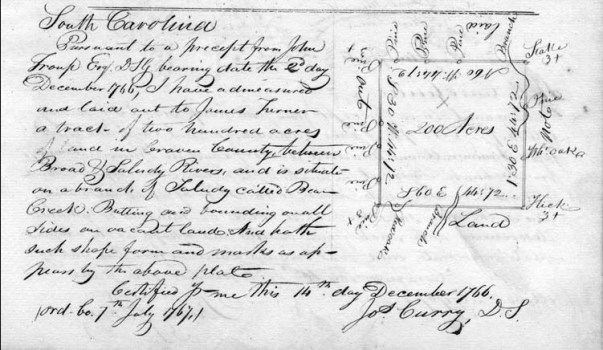 South Carolina
Pursuant to a precept from John
Troup Esq. D.S.G. bearing date the 2d day
December 1766, I have admeasured
and laid out to James Turner
a tract of two hundred acres
of land in Craven County, between
Broad & Saludy Rivers, and is situate
on a branch of Saludy called Bear
Creek. Butting and bounding on all
sides on vacant land And hath
such shape form and marks as ap-
pears by the above plat.
Certified pr me this 14th day December 1766.
Ord. Co. 7th July 1767,
Jos Curry, D.S.
laid
Branch
Pine
Pine
Pine
Stake
3t
Pine
3t
Out
Pine
Pine
Pine
3t
200 Acres
44:72
Pine
Not
Wh. oake
Hick
3t
Branch
Land